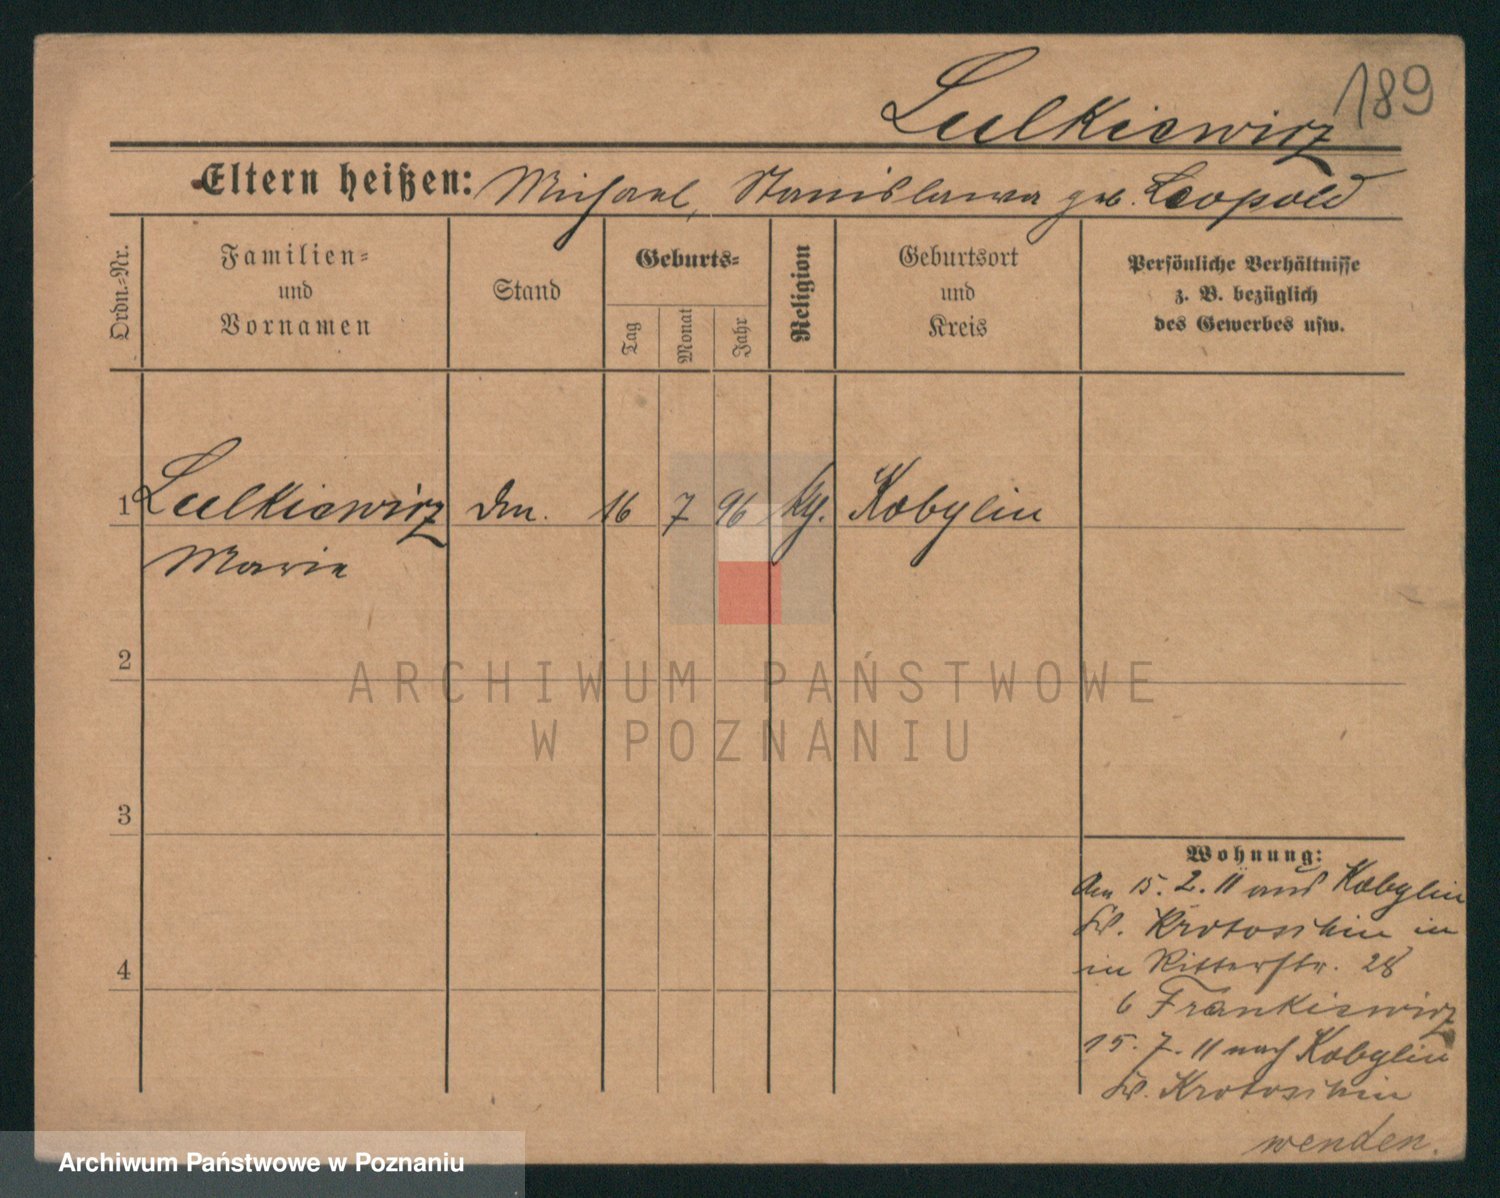 189
Lulkiewicz
Eltern heißen: Michael, Stanislawa geb. Leopold
Ordn.-Nr.
Familien-
und
Vornamen
Stand
Geburts-
Tag
Monat
Jahr
Religion
Geburtsort
und
Kreis
Persönliche Verhältnisse
z. B. bezüglich
des Gewerbes usw.
1 Lulkiewicz 16 7 96 Kobylin
Marie
2
3
4
Wohnung:
Am 15. 2. 11 aus Kobylin
Kr. Krotoschin in
in Ritterstr. 28
b Frankiewicz
15. 7. 11 nach Kobylin
Kr. Krotoschin
wenden.
ARCHIWUM PAŃSTWOWE
W POZNANIU
Archiwum Państwowe w Poznaniu